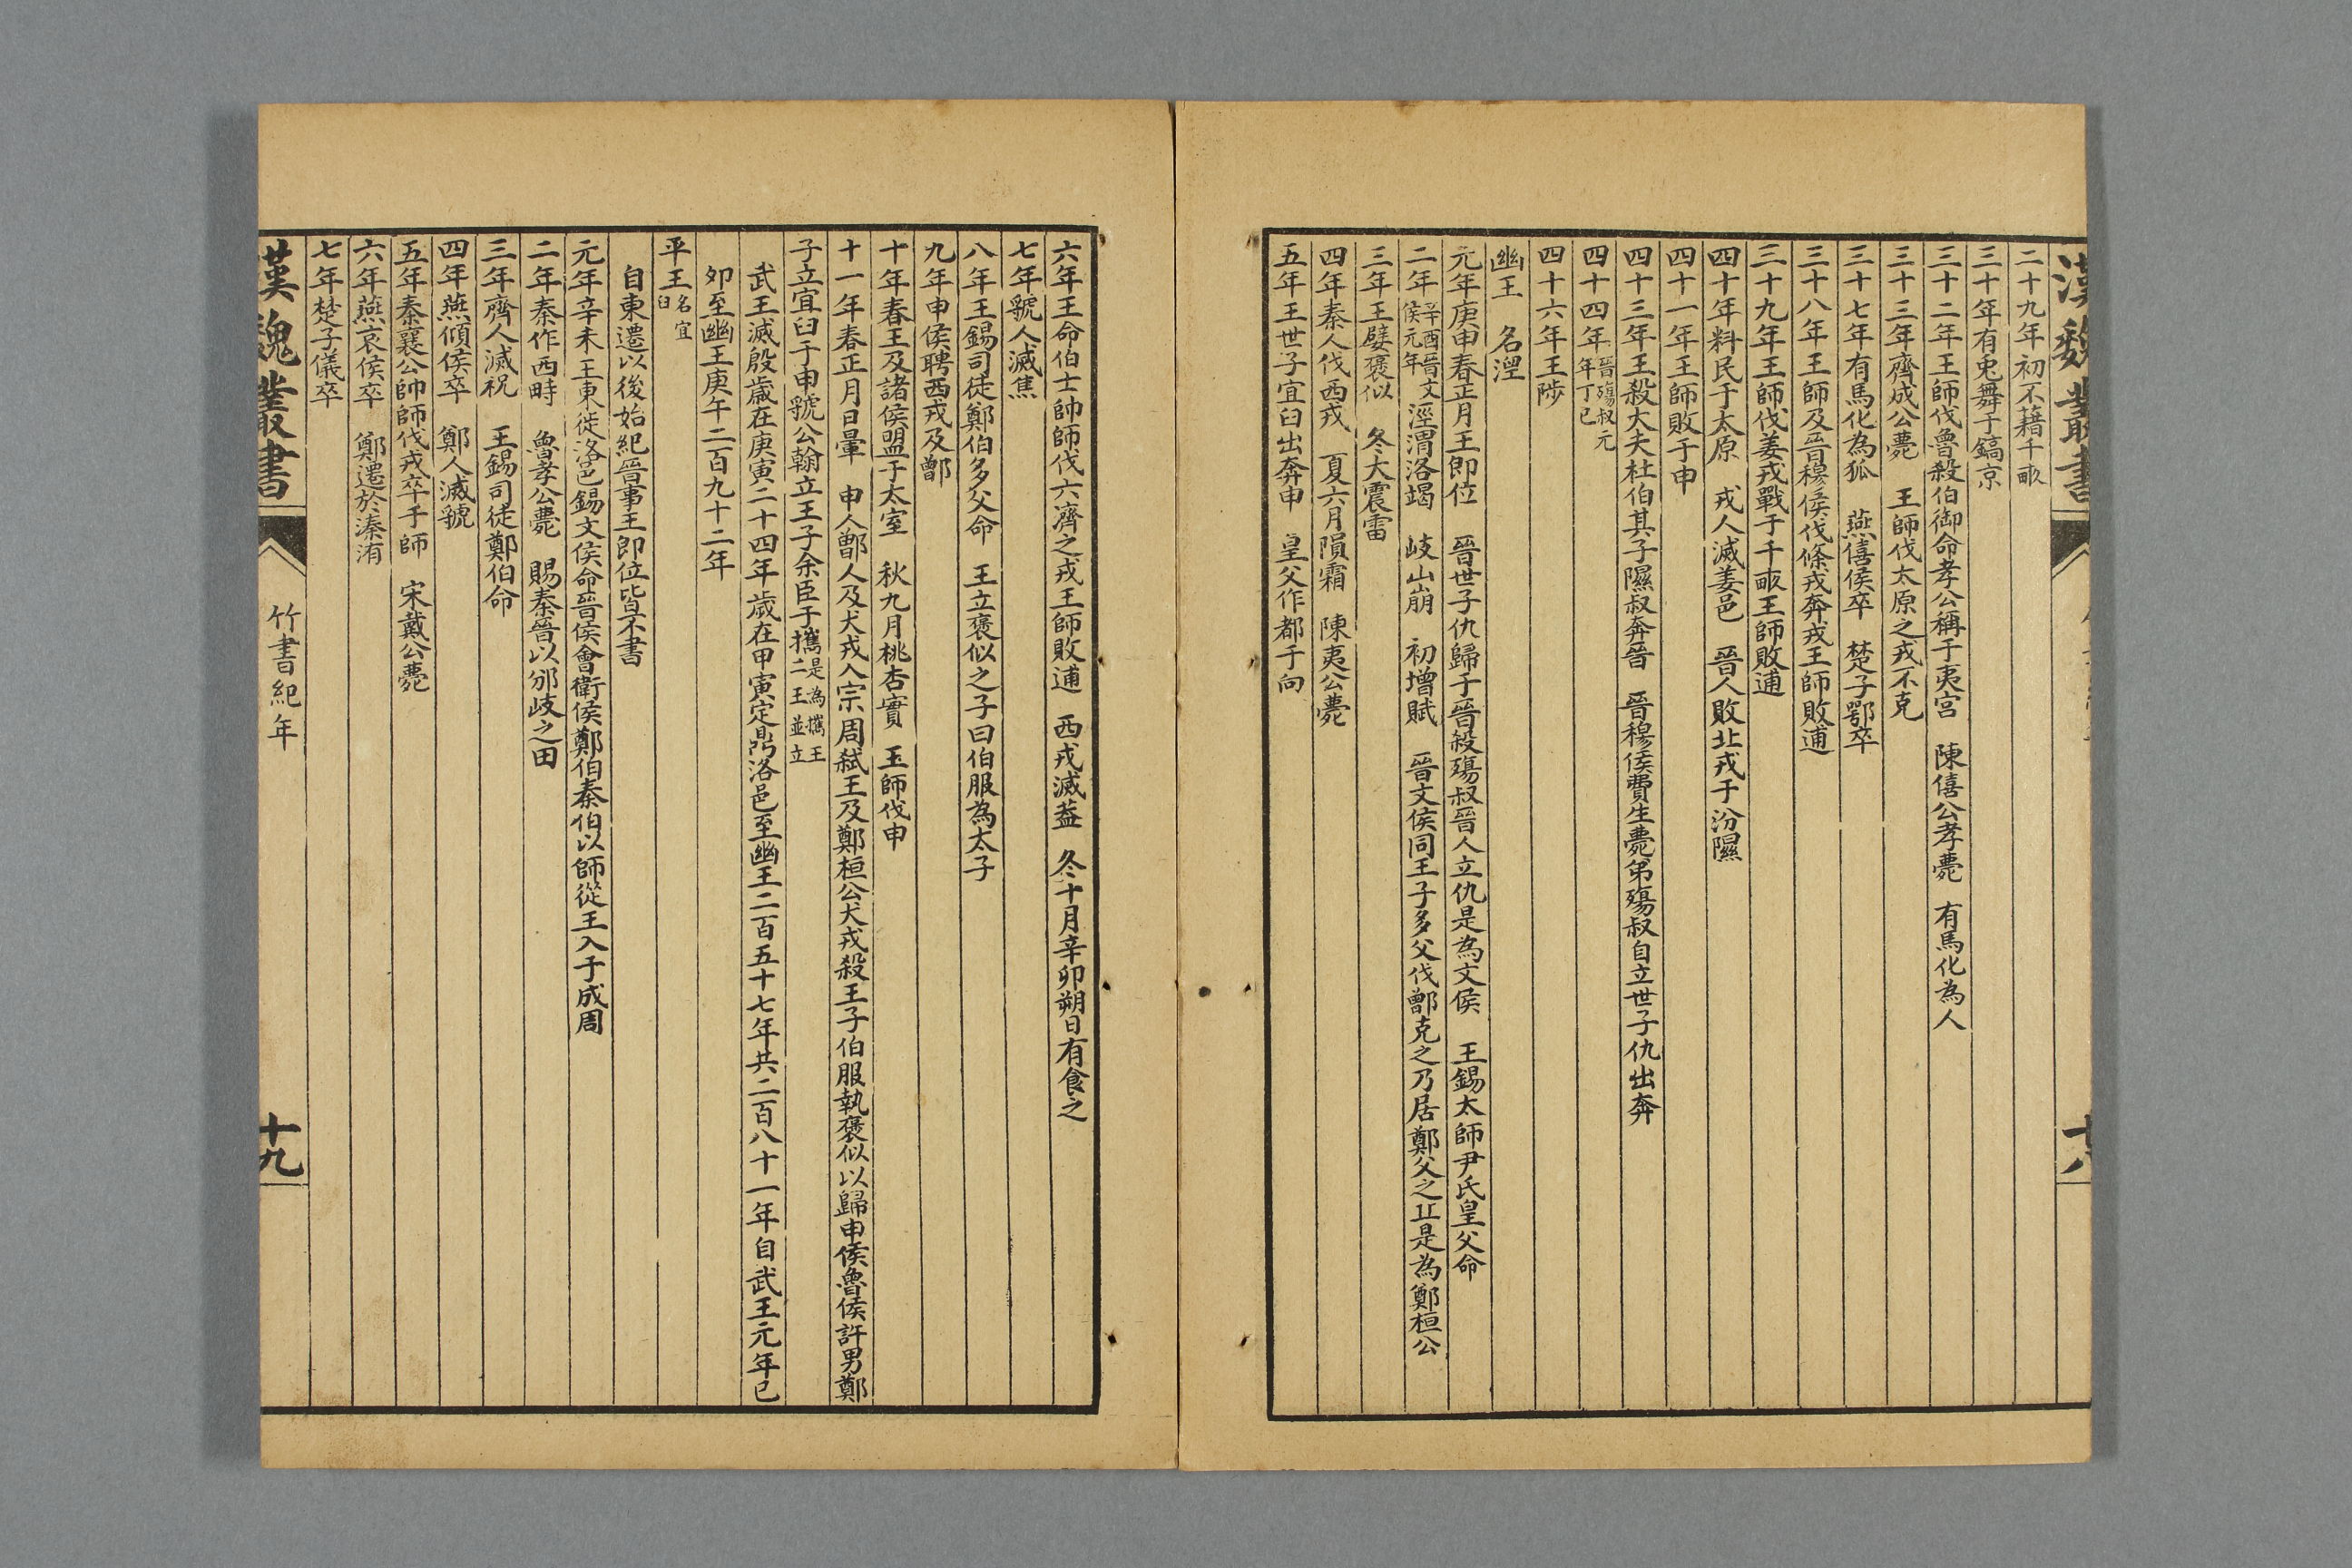 漢魏叢書
二十九年初不藉千畝
三十年有兎舞于鎬京
三十二年王師伐魯殺伯御命孝公稱于夷宮　陳僖公孝薨　有馬化為人
三十三年齊成公薨　王師伐太原之戎不克
三十七年有馬化為狐　燕僖侯卒　楚子鄂卒
三十八年王師及晉穆侯伐條戎奔戎王師敗逋
三十九年王師伐姜戎戰于千畝王師敗逋
四十年料民于太原　戎人滅姜邑　晉人敗北戎于汾隰
四十一年王師敗于申
四十三年王殺大夫杜伯其子隰叔奔晉　晉穆侯費生薨弟殤叔自立世子仇出奔
四十四年晉殤叔元年丁巳
四十六年王陟
幽王　名湼
元年庚申春正月王即位　晉世子仇歸于晉殺殤叔晉人立仇是為文侯　王錫太師尹氏皇父命
二年辛酉晉文侯元年涇渭洛竭　岐山崩　初增賦　晉文侯同王子多父伐鄫克之乃居鄭父之丘是為鄭桓公
三年王嬖褒似　冬大震雷
四年秦人伐西戎　夏六月隕霜　陳夷公薨
五年王世子宜臼出奔申　皇父作都于向
六年王命伯士帥師伐六濟之戎王師敗逋　西戎滅蓋　冬十月辛卯朔日有食之
七年虢人滅焦
八年王錫司徒鄭伯多父命　王立褒似之子曰伯服為太子
九年申侯聘西戎及鄫
十年春王及諸侯盟于太室　秋九月桃杏實　王師伐申
十一年春正月日暈　申人鄫人及犬戎入宗周弑王及鄭桓公犬戎殺王子伯服執褒似以歸申侯魯侯許男鄭
子立宜臼于申虢公翰立王子余臣于攜是為攜王二王並立
武王滅殷歲在庚寅二十四年歲在甲寅定鼎洛邑至幽王二百五十七年共二百八十一年自武王元年己
夘至幽王庚午二百九十二年
平王名宜臼
自東遷以後始紀晉事王即位皆不書
元年辛未王東徙洛邑錫文侯命晉侯會衛侯鄭伯秦伯以師從王入于成周
二年秦作西畤　魯孝公薨　賜秦晉以邠岐之田
三年齊人滅祝　王錫司徒鄭伯命
四年燕傾侯卒　鄭人滅虢
五年秦襄公帥師伐戎卒于師　宋戴公薨
六年燕哀侯卒　鄭遷於溱洧
七年楚子儀卒
漢魏叢書
竹書紀年
十九